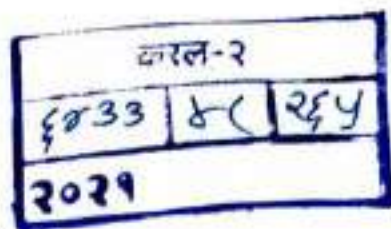 करल-२
६४३३ ४८ २६५
२०२१